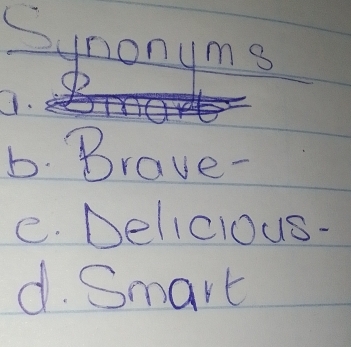 Synonyms
a. Smart
b. Brave-
c. Delicious-
d. Smart